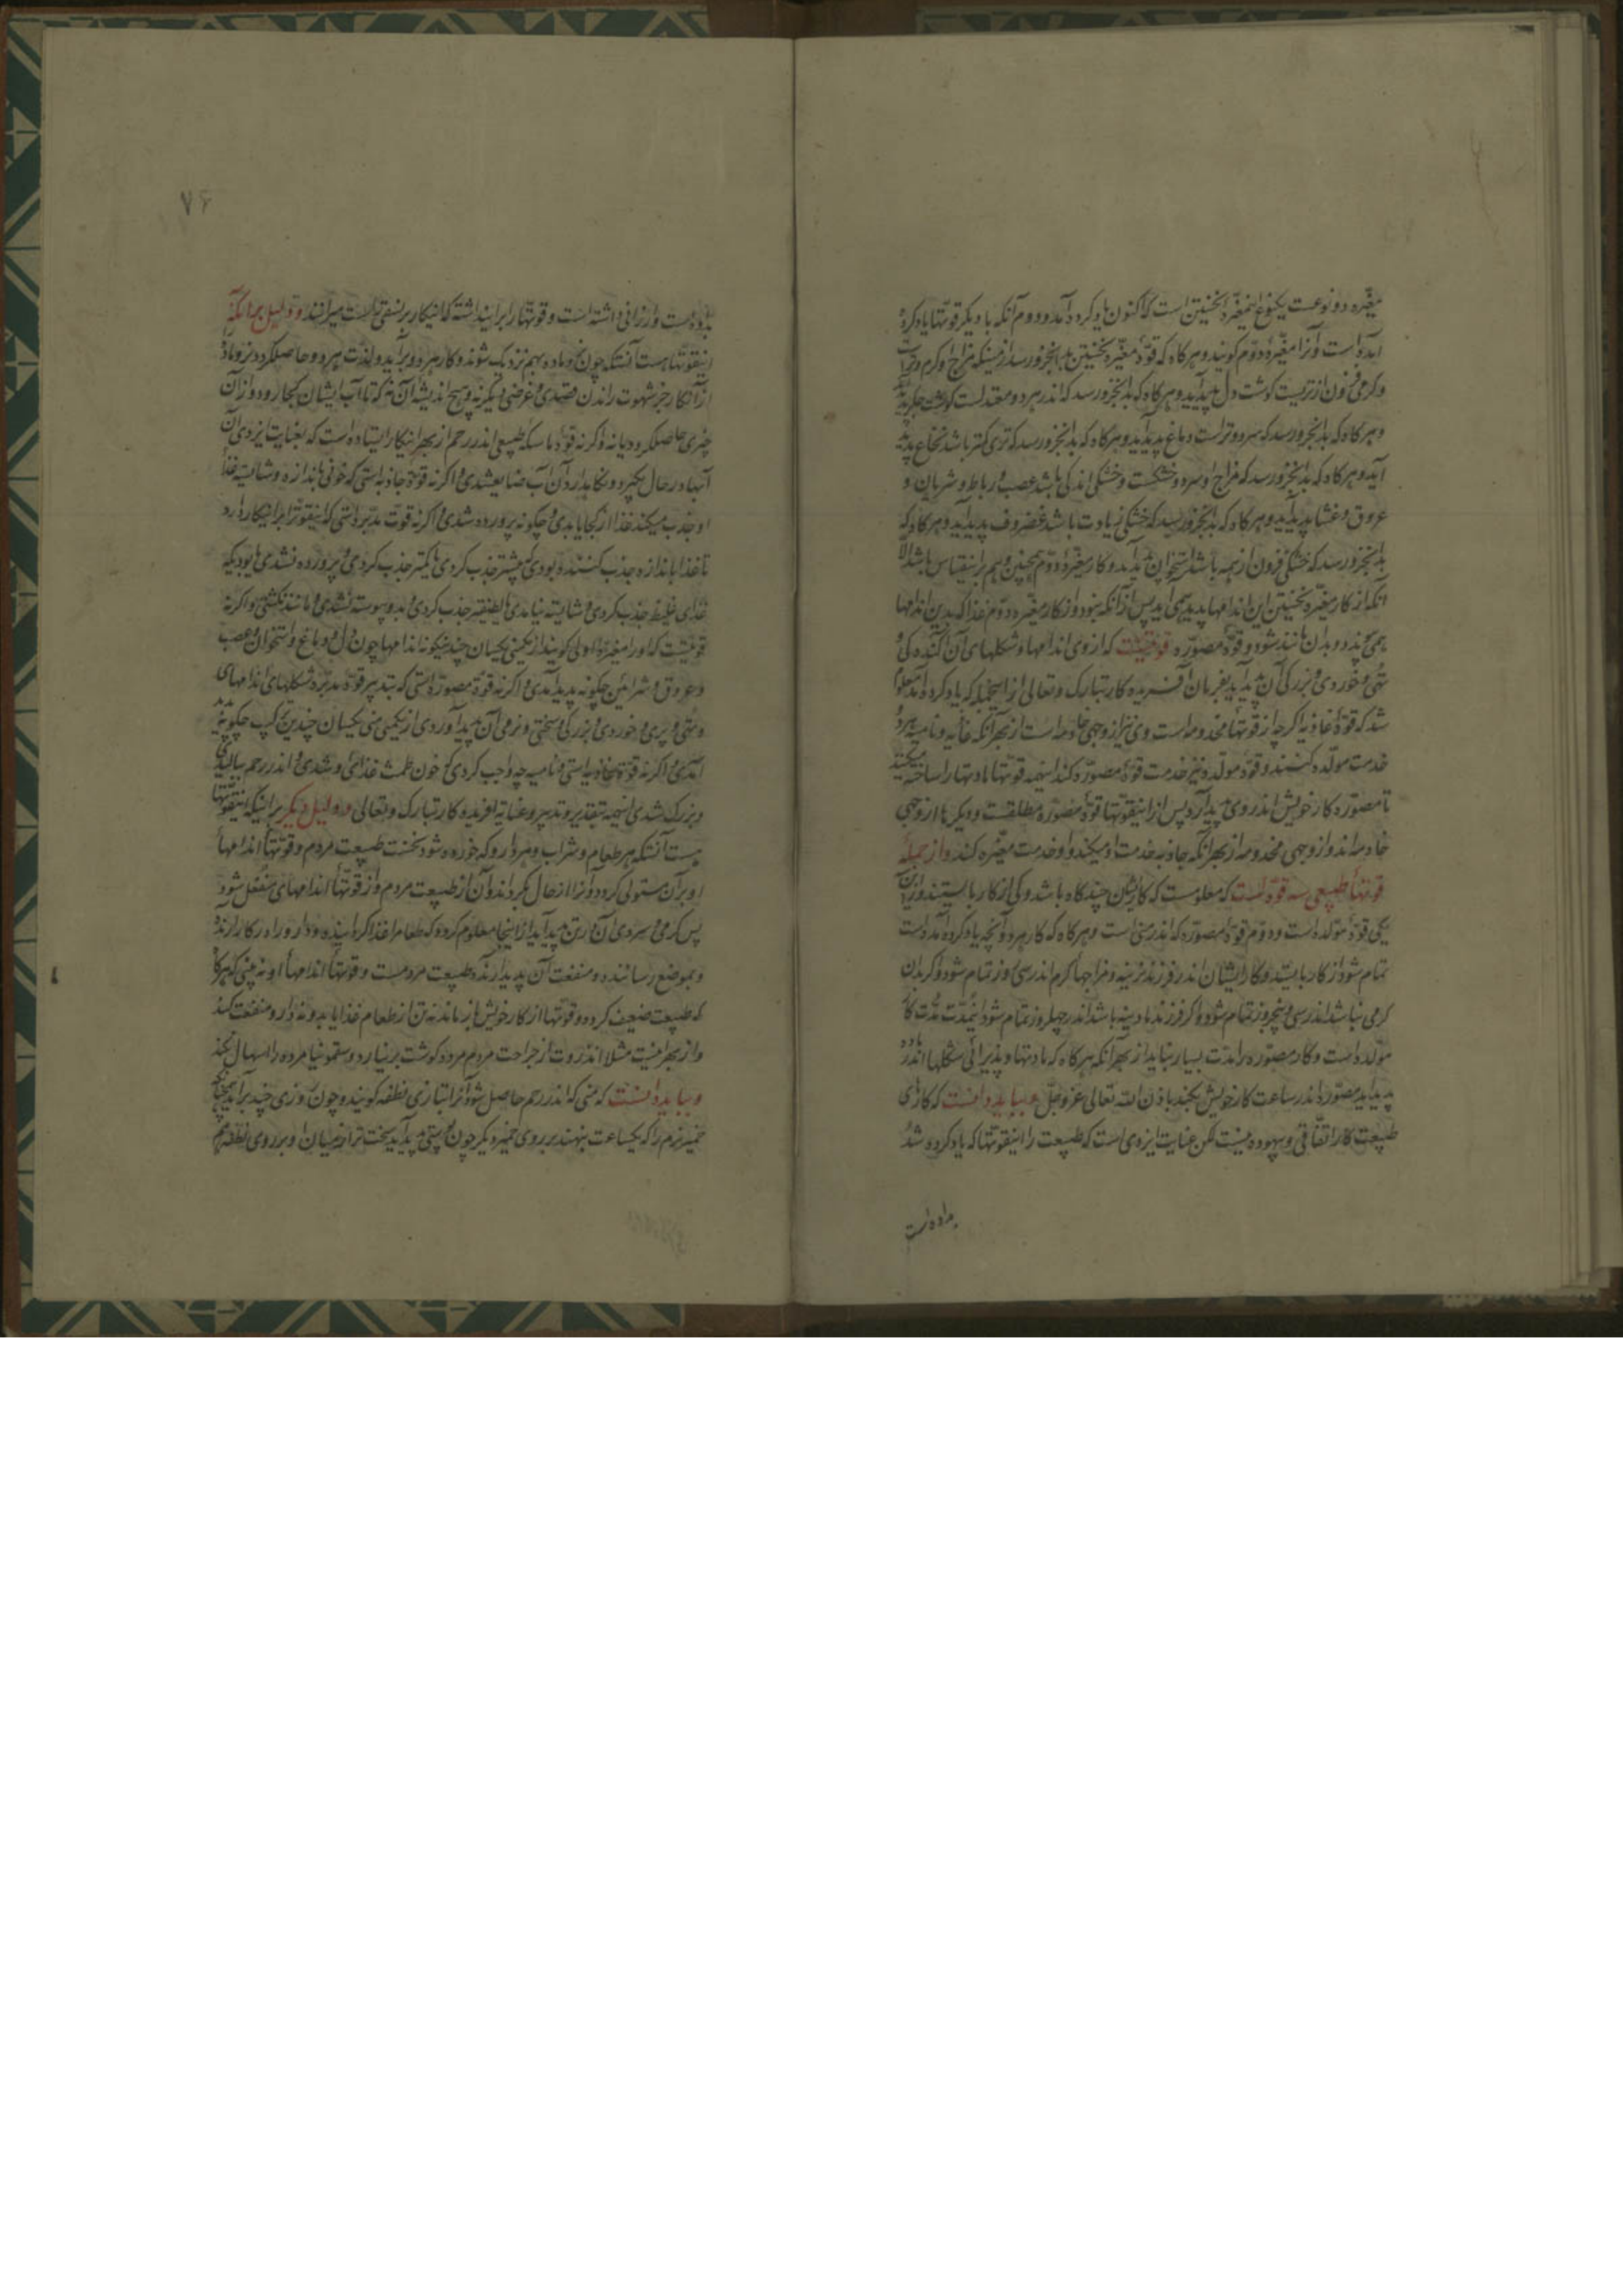 مغیّره دو نوعست یکنوع این مغیّرهٔ نخستین است که اکنون یاد کرده آمد و دوم آنکه با دیگر قوتها یاد کرده
آمده است و آنرا مغیّرهٔ دوّم گویند و هرگاه که قوّهٔ مغیّره نخستین بدانجزو رسد از منی که مزاج او گرم و تر است
و گرمی فزون از تریست گوشت دل پدید آید و هرگاه که بدانجزو رسد که اندر هر دو معتدلست گوشت جگر پدید آید
و هرگاه که بدانجزو رسد که سرد و تر است دماغ پدید آید و هرگاه که بدانجزو رسد که تری کمتر باشد نخاع پدید
آید و هرگاه که بدانجزو رسد که مزاج او سرد و خشکست و خشکی اندکی باشد عصب و رباط و شریان و
عروق و غشا پدید آید و هرگاه که بدانجزو رسد که خشکی زیادت باشد غضروف پدید آید و هرگاه که
بدانجزو رسد که خشکی فزون از همه باشد استخوان پدید آید و کار مغیّرهٔ دوّم همچنین و هم بر اینقیاس باشد الّا
آنکه از کار مغیّره نخستین این اندامها پدید همی آید پس از آنکه نبود و از کار مغیّره دوّم غذا که بدین اندامها
همی پذدد بدان مانند شود و قوّهٔ مصوّره قوتیست که از وی اندامها و شکلهای آن کنده کی و
تهی و خوردی و بزرگی آن پدید آید بفرمان آفریدگار تبارک و تعالی از اینجمله که یاد کرده آمد معلوم
شد که قوّهٔ غاذیه اگرچه از قوتها مخدومه است وی نیز از وجهی خادمه است از بهر آنکه غاذیه و نامیه هر دو
خدمت مولّده کنند و قوّهٔ مولّده نیز خدمت قوّهٔ مصوّره کند اینهمه قوتها مادتها را ساخته میکنند
تا مصوّره کار خویش اندر وی پدید آرد پس از اینقوتها قوّهٔ مصوّره مطلقست و دیگرها از وجهی
خادمه اند و از وجهی مخدومه از بهر آنکه جاذبه خدمت او میکند و او خدمت مغیّره کند و از جمله
قوتهاء طبیعی سه قوّه است که معلومست که کار ایشان چند گاه باشد و کی از کار باایستند و از این
یکی قوّهٔ مولّده است و دوّم قوّهٔ مصوّره که اندر منی است و هرگاه که کار هر دو آنچه یاد کرده آمده است
تمام شود از کار بایستد و کار ایشان اندر فرزند نرینه و مزاجهاء گرم اندر سی روز تمام شود و اگر بدان
گرمی نباشد اندر سی و پنجروز تمام شود و اگر فرزند مادینه باشد اندر چهلروز تمام شود اینمدّت مدّت کار
مولّده است و کار مصوّره را مدّت بسیار نباید از بهر آنکه هرگاه که مادتها و پذیرائی شکلها اندر ماده
پدید آید مصوّره اندر ساعت کار خویش بکند باذن الله تعالی عزّ و جلّ و بباید دانست که کارهای
طبیعت کار اتّفاقی و بیهوده نیست لکن عنایت ایزدی است که طبیعت را اینقوتها که یاد کرده شد
بداده است
۷۶
بداده است و ارزانی داشته است و قوتها را بر این داشته که اینکار بر نسقی راست میرانند و دلیل بر آنکه
اینقوتها هست آنستکه چون نر و ماده بهم نزدیک شوند و کار هر دو برآید و لذّت هر دو حاصل گردد نر و ماده را
از آنکار جز شهوت راندن قصدی و غرضی دیگر نه و هیچ اندیشه آن نه که تا آب ایشان کجا رود و از آن
چیزی حاصل گردد یا نه و اگر نه قوّهٔ ماسکه طبیعی اندر رحم از بهر اینکار ایستاده است که بعنایت ایزدی آن
آبها در حال بگیرد و نگاهدارد آن آب ضایع شدی و اگر نه قوّهٔ جاذبه استی که خونی باندازه و شایسته غذاء
او جذب میکند غذا از کجا یابدی و چگونه پرورده شدی و اگر نه قوّت مدبّره استی که اینقوتها را بر اینکار دارد
تا غذا باندازه جذب کنند و بودی که بیشتر جذب کردی یا کمتر جذب کردی و پرورده نشدی یا بودی که
غذای غلیظ جذب کردی و شایسته نیامدی یا لطیفتر جذب کردی و بدو پیوسته نشدی و مانند نگشتی و اگر نه
قوتیست که او را مغیّرة الاولی گویند از یکمنی یکسان چندین گونه اندامها چون دل و دماغ و استخوان و عصب
و عروق و شرائین چگونه پدید آمدی و اگر نه قوّهٔ مصوّره استی که بتدبیر قوّهٔ مدبّره شکلهای اندامهای
و تهی و پری و خوردی و بزرگی و سختی و نرمی آن پدید آوردی از یکمنی یکسان چندین ترکیب چگونه پدید
آمدی و اگر نه قوّهٔ غاذیه استی و نامیه چه واجب کردی که خون طمث غذائی و شدی و اندر رحم ببالیدی
و بزرگ شدی اینهمه بتقدیر و تدبیر و عنایه آفریدگار تبارک و تعالی و دلیل دیگر بر اینکه اینقوتها
هست آنستکه هر طعام و شراب و هر دارو که خورده شود نخست طبیعت مردم و قوتهاء اندامهاء
او بر آن مستولی گردد و آنرا از حال بگرداند و آن از طبیعت مردم و از قوتهاء اندامهای منفعل شود
پس گرمی و سردی آن در تن پدید آید از اینجا معلوم گردد که طعام را غذا گرداننده و دارو را در کار آرنده
و بموضع رسانند و منفعت آن پدید آرنده طبیعت مردمست و قوتهاء اندامهاء او نه بینی که هرگاه
که طبیعت ضعیف گردد و قوتها از کار خویش باز ماند نه تن از طعام غذا یابد و نه دارو منفعت کند
و از بهر اینست مثلا انزروت از جراحت مردم مرده گوشت بر نیارد و سقمونیا مرده را اسهال نکند
و بباید دانست که منی که اندر رحم حاصل شود آنرا بتازی نطفه گویند و چون روزی چند برآید همچنانکه
خمیر نرم را که یکساعت بنهند بر روی خمیر دیگر چون پوستی پدید آید سخت تر از میان او بر روی نطفه هم